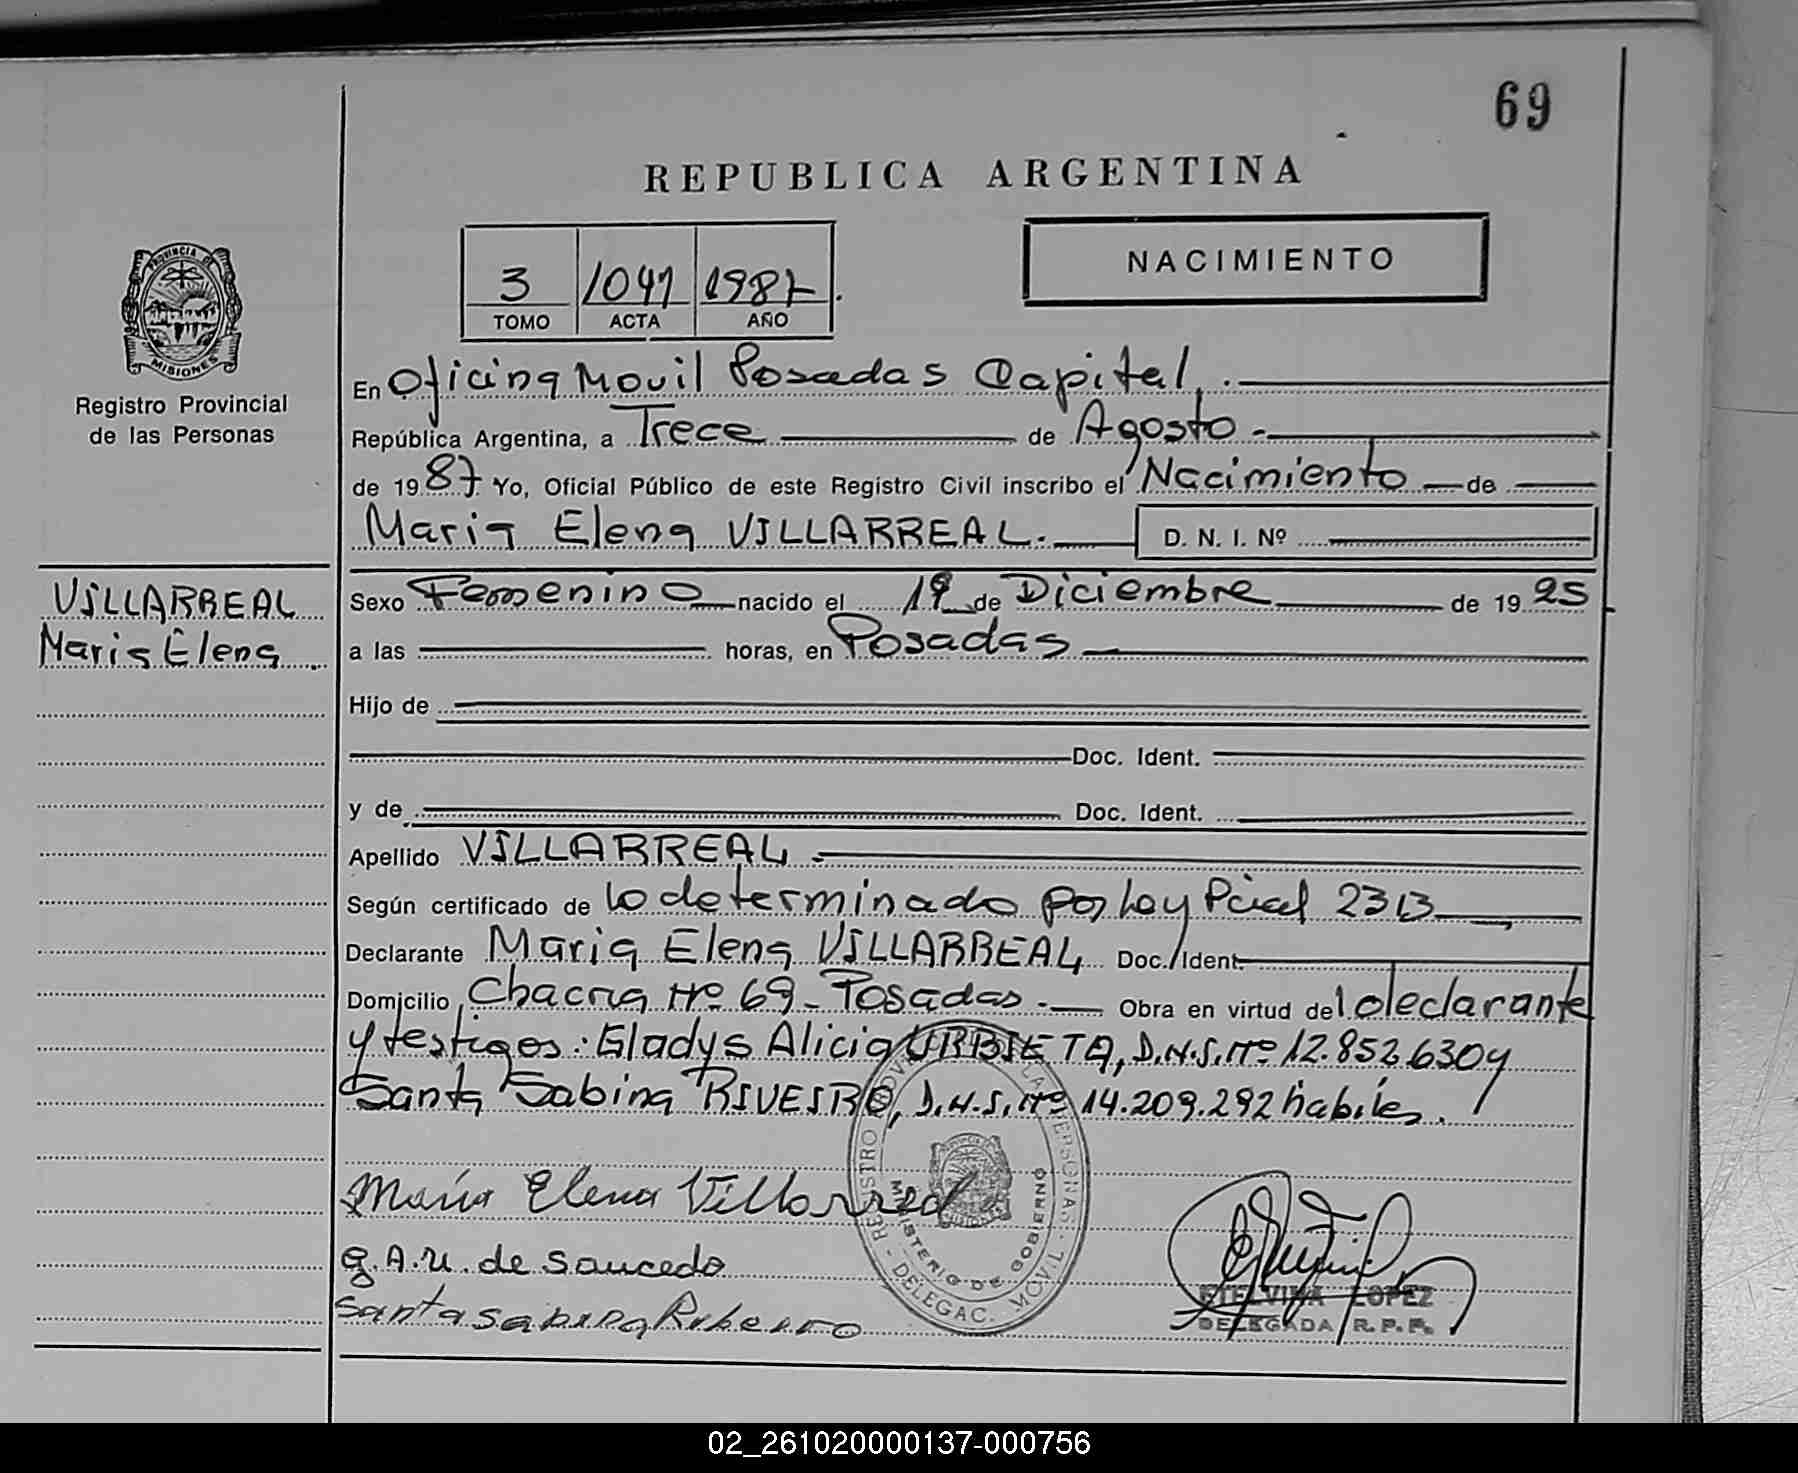 69
REPUBLICA ARGENTINA
3 1041 1987.
TOMO ACTA AÑO
NACIMIENTO
PROVINCIA DE
MISIONES
Registro Provincial
de las Personas
VILLARREAL
Maria Elena
En Oficina Movil Posadas Capital.
República Argentina, a Trece de Agosto
de 1987. Yo, Oficial Público de este Registro Civil inscribo el Nacimiento de
Maria Elena VILLARREAL. D. N. I. Nº
Sexo Femenino nacido el de Diciembre de 19
a las horas, en Posadas
Hijo de
Doc. Ident.
y de Doc. Ident.
Apellido VILLARREAL
Según certificado de lo determinado por Ley Pcial 2313
Declarante Maria Elena VILLARREAL Doc. Ident.
Domicilio Chacra Nº 69 - Posadas. Obra en virtud del declarante
y testigos: Gladys Alicia URBIETA, D.N.I. Nº 12.852.630 y
Santa Sabina RIVEIRO, D.N.I. Nº 14.209.292 habiles.
María Elena Villarreal
G.A.U. de Saucedo
Santa Sabina Ribeiro
MINISTERIO DE GOBIERNO
DELEGAC. MOVIL
ETELVINA LOPEZ
DELEGADA R.P.P.
02_261020000137-000756